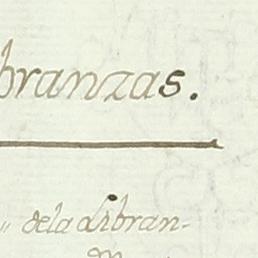 branzas.
dela Libran-